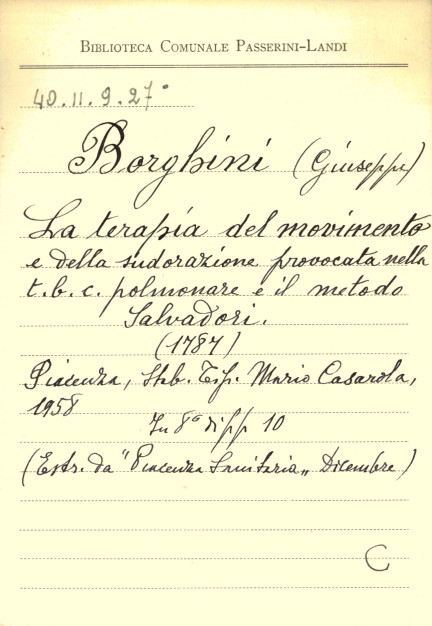 BIBLIOTECA COMUNALE PASSERINI-LANDI
40.11.9.27°
Borghini (Giuseppe)
La terapia del movimento
e della sudorazione provocata nella
t.b.c. polmonare e il metodo
Salvadori.
(1787)
Piacenza, Stab. Tip. Mario Casarola,
1958
In 8° di pp 10
(Estr. da "Piacenza Sanitaria„ Dicembre)
C